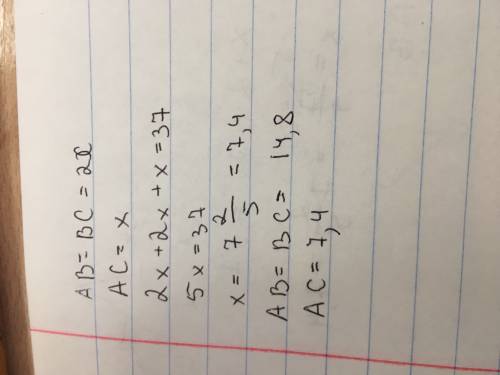 AB = BC = 2x
AC = x
2x + 2x + x = 37
5x = 37
x = 7 2/5 = 7,4
AB = BC = 14,8
AC = 7,4